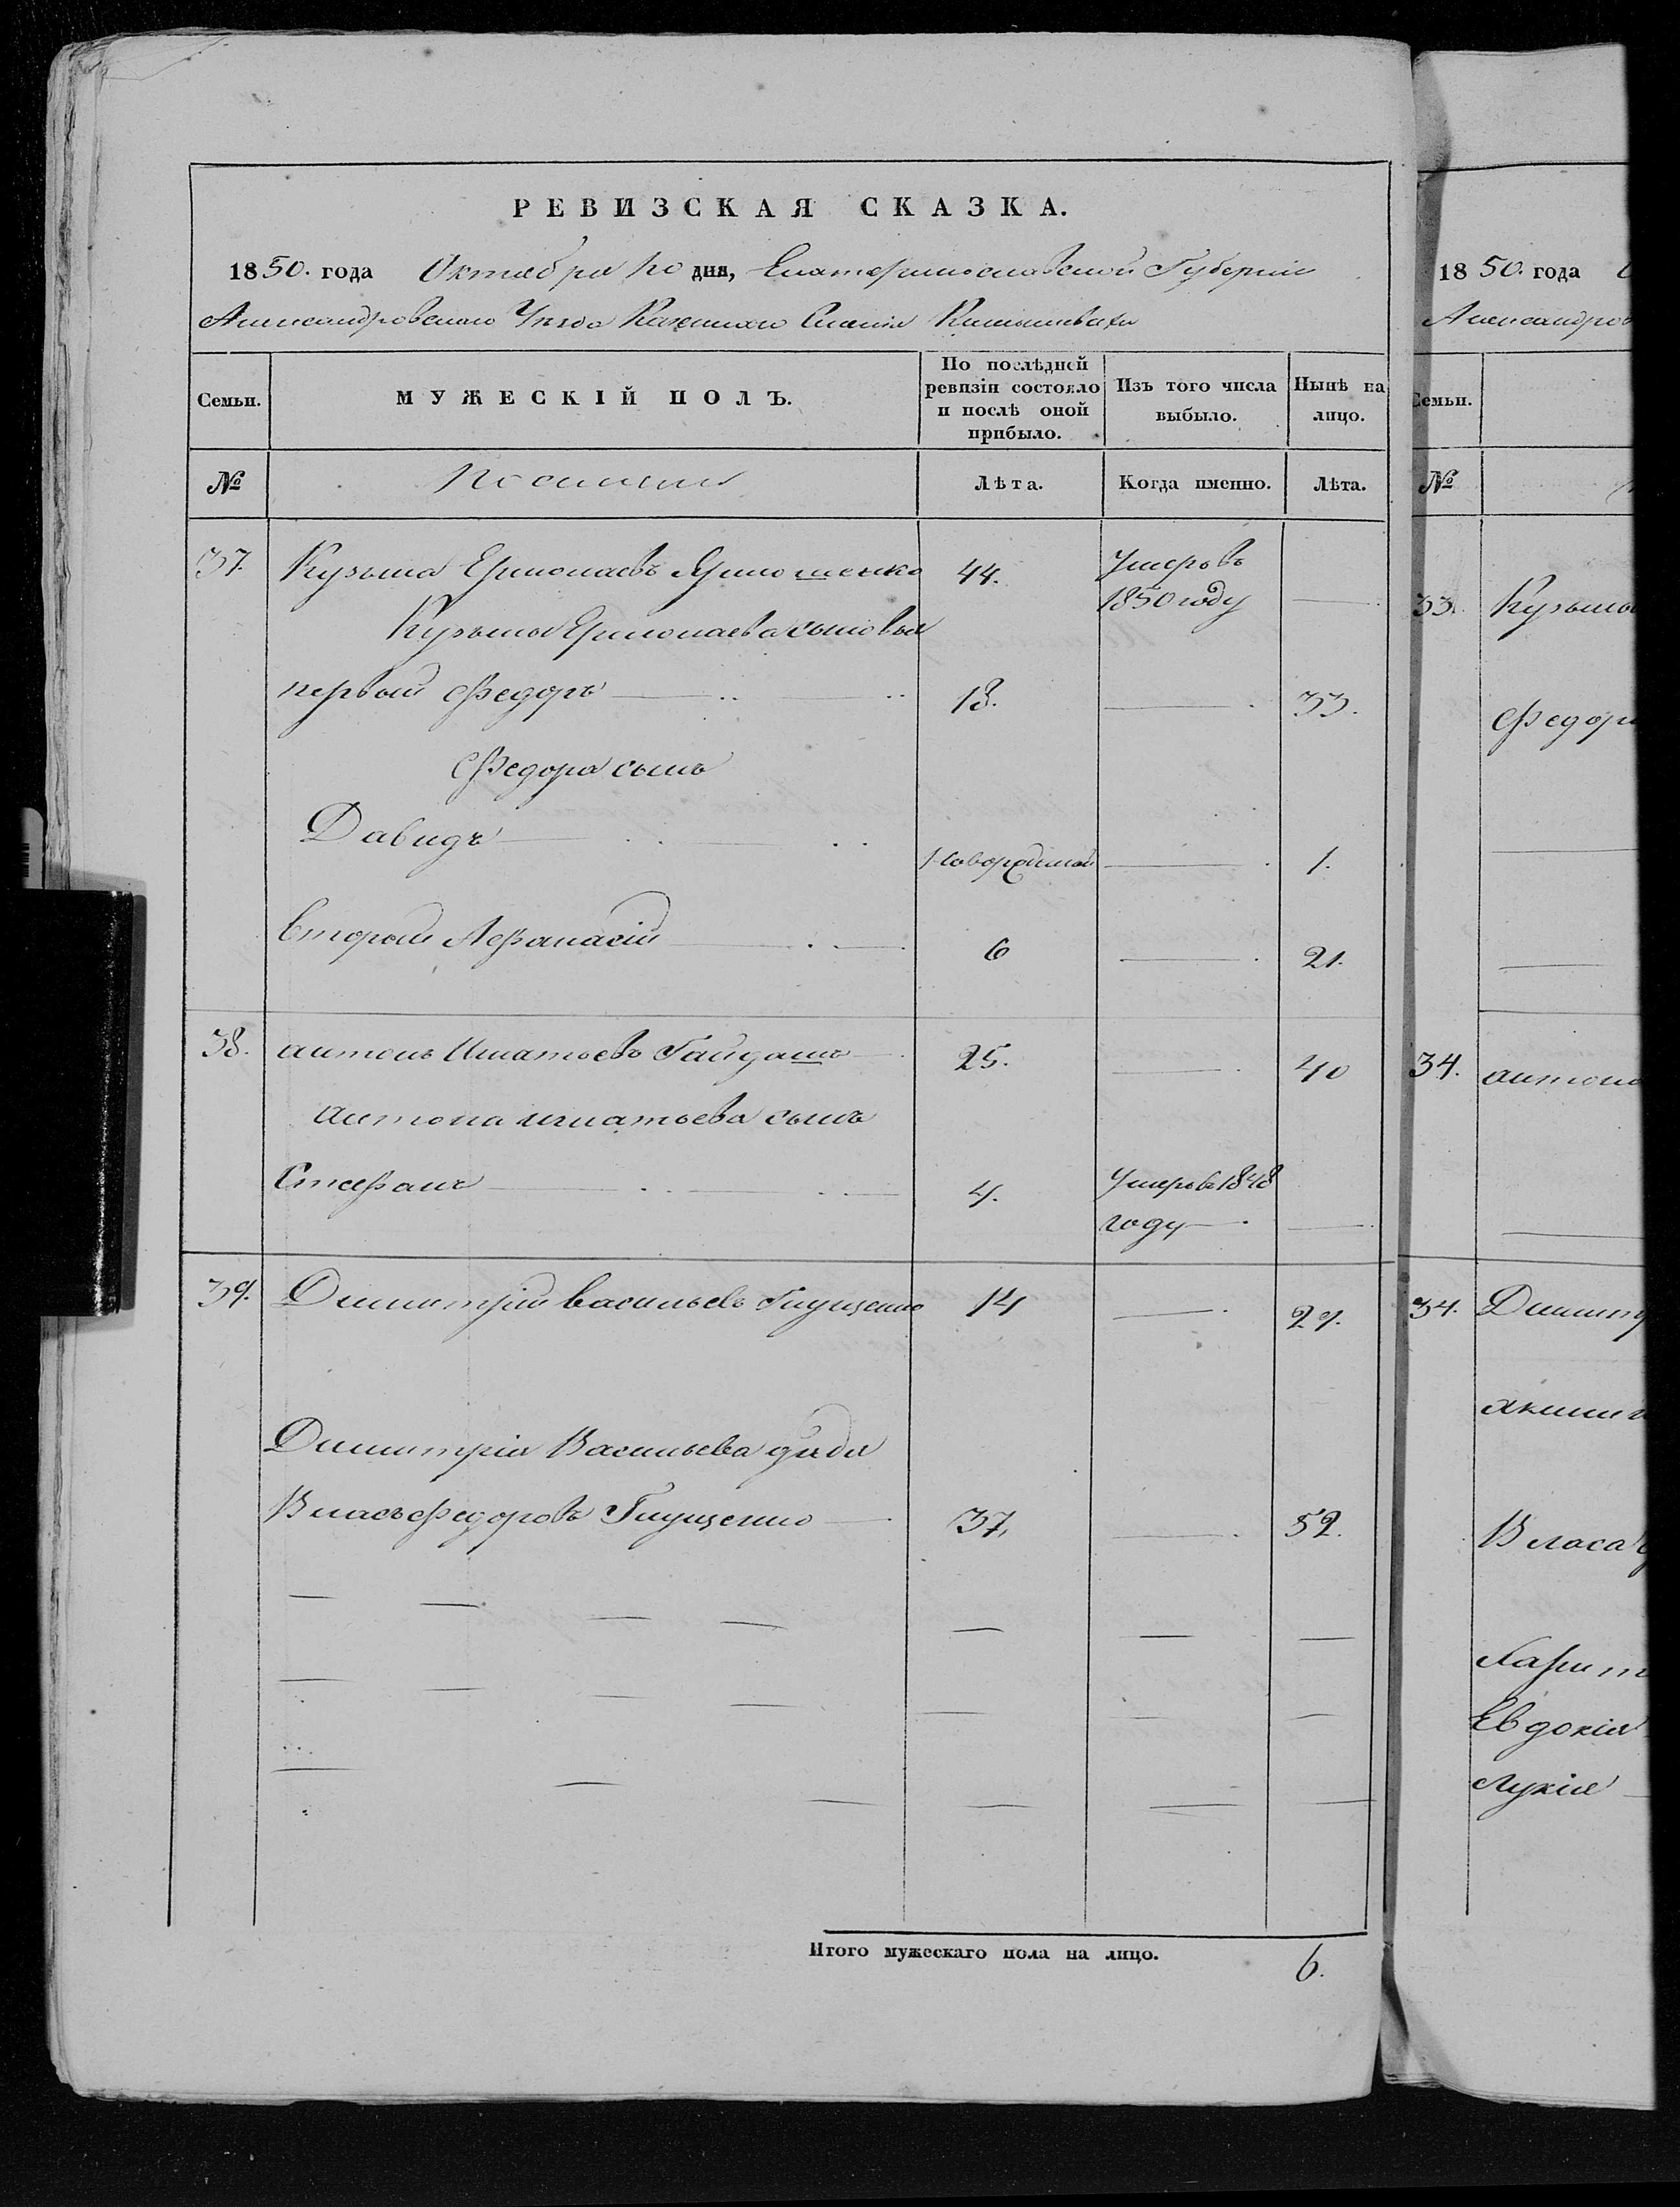 РЕВИЗСКАЯ СКАЗКА.
1850. года Октября 10 дня, Екатеринославской Губернiи
Александровскаго Уѣзда Казеннаго Селенiя
Семьи. МУЖЕСКIЙ ПОЛЪ. По послѣдней ревизiи состояло и послѣ оной прибыло. Изъ того числа выбыло. Нынѣ на лицо.
№ Лѣта. Когда именно. Лѣта.
37. Кузьма Ермолаевъ 44. Умеръ въ
1850 году —
Кузьмы Ермолаева сыновья
первый Федоръ 18. — 33.
Федора сынъ
Давидъ Новорожденной — 1.
Второй Афанасiй 6 — 21.
38. антонъ Игнатьевъ Гайдашъ 25. — 40
антона игнатьева сынъ
Стефанъ 4. Умеръ въ 1848
году —
39. Димитрiй васильевъ Глущенко 14 — 29.
Димитрiя Васильева дядя
Власъ Федоровъ Глущенко 37. — 52.
Итого мужескаго пола на лицо. 6.
1850. года
Александров
Семьи.
№
33. Кузьмы
Федора
34. антона
34. Димитр
Власа
Харит
Евдокiя
Лукiя